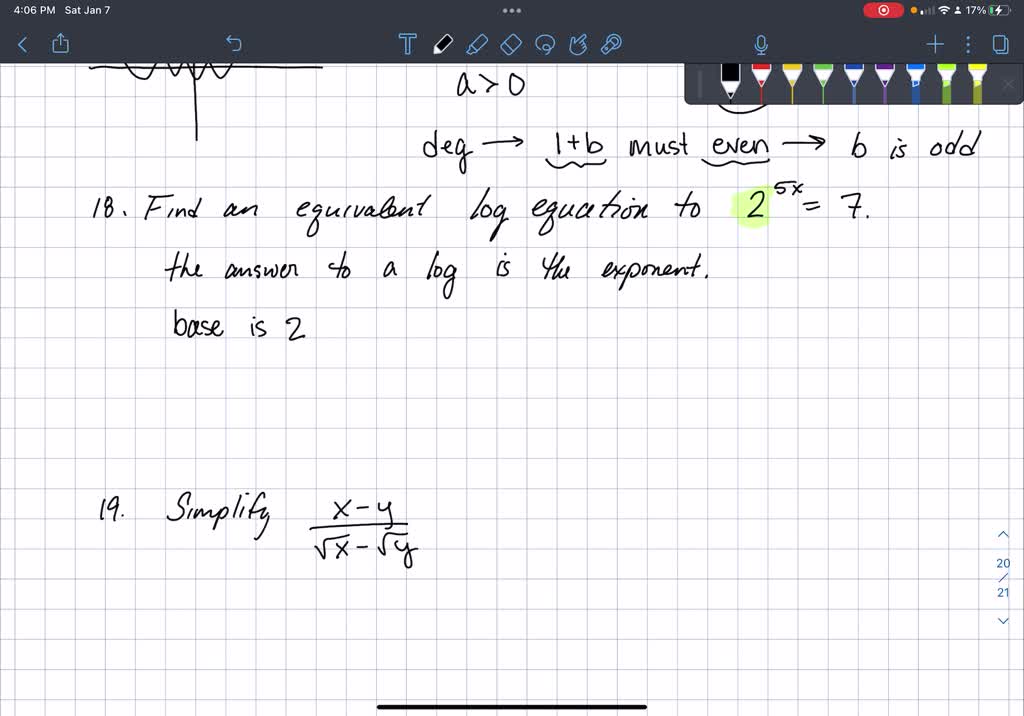 4:06 PM Sat Jan 7
17%
T
a > 0
deg → 1+b must even → b is odd
18. Find an equivalent log equation to 2^5x = 7.
the answer to a log is the exponent.
base is 2
19. Simplify (x - y) / (√x - √y)
20
/
21